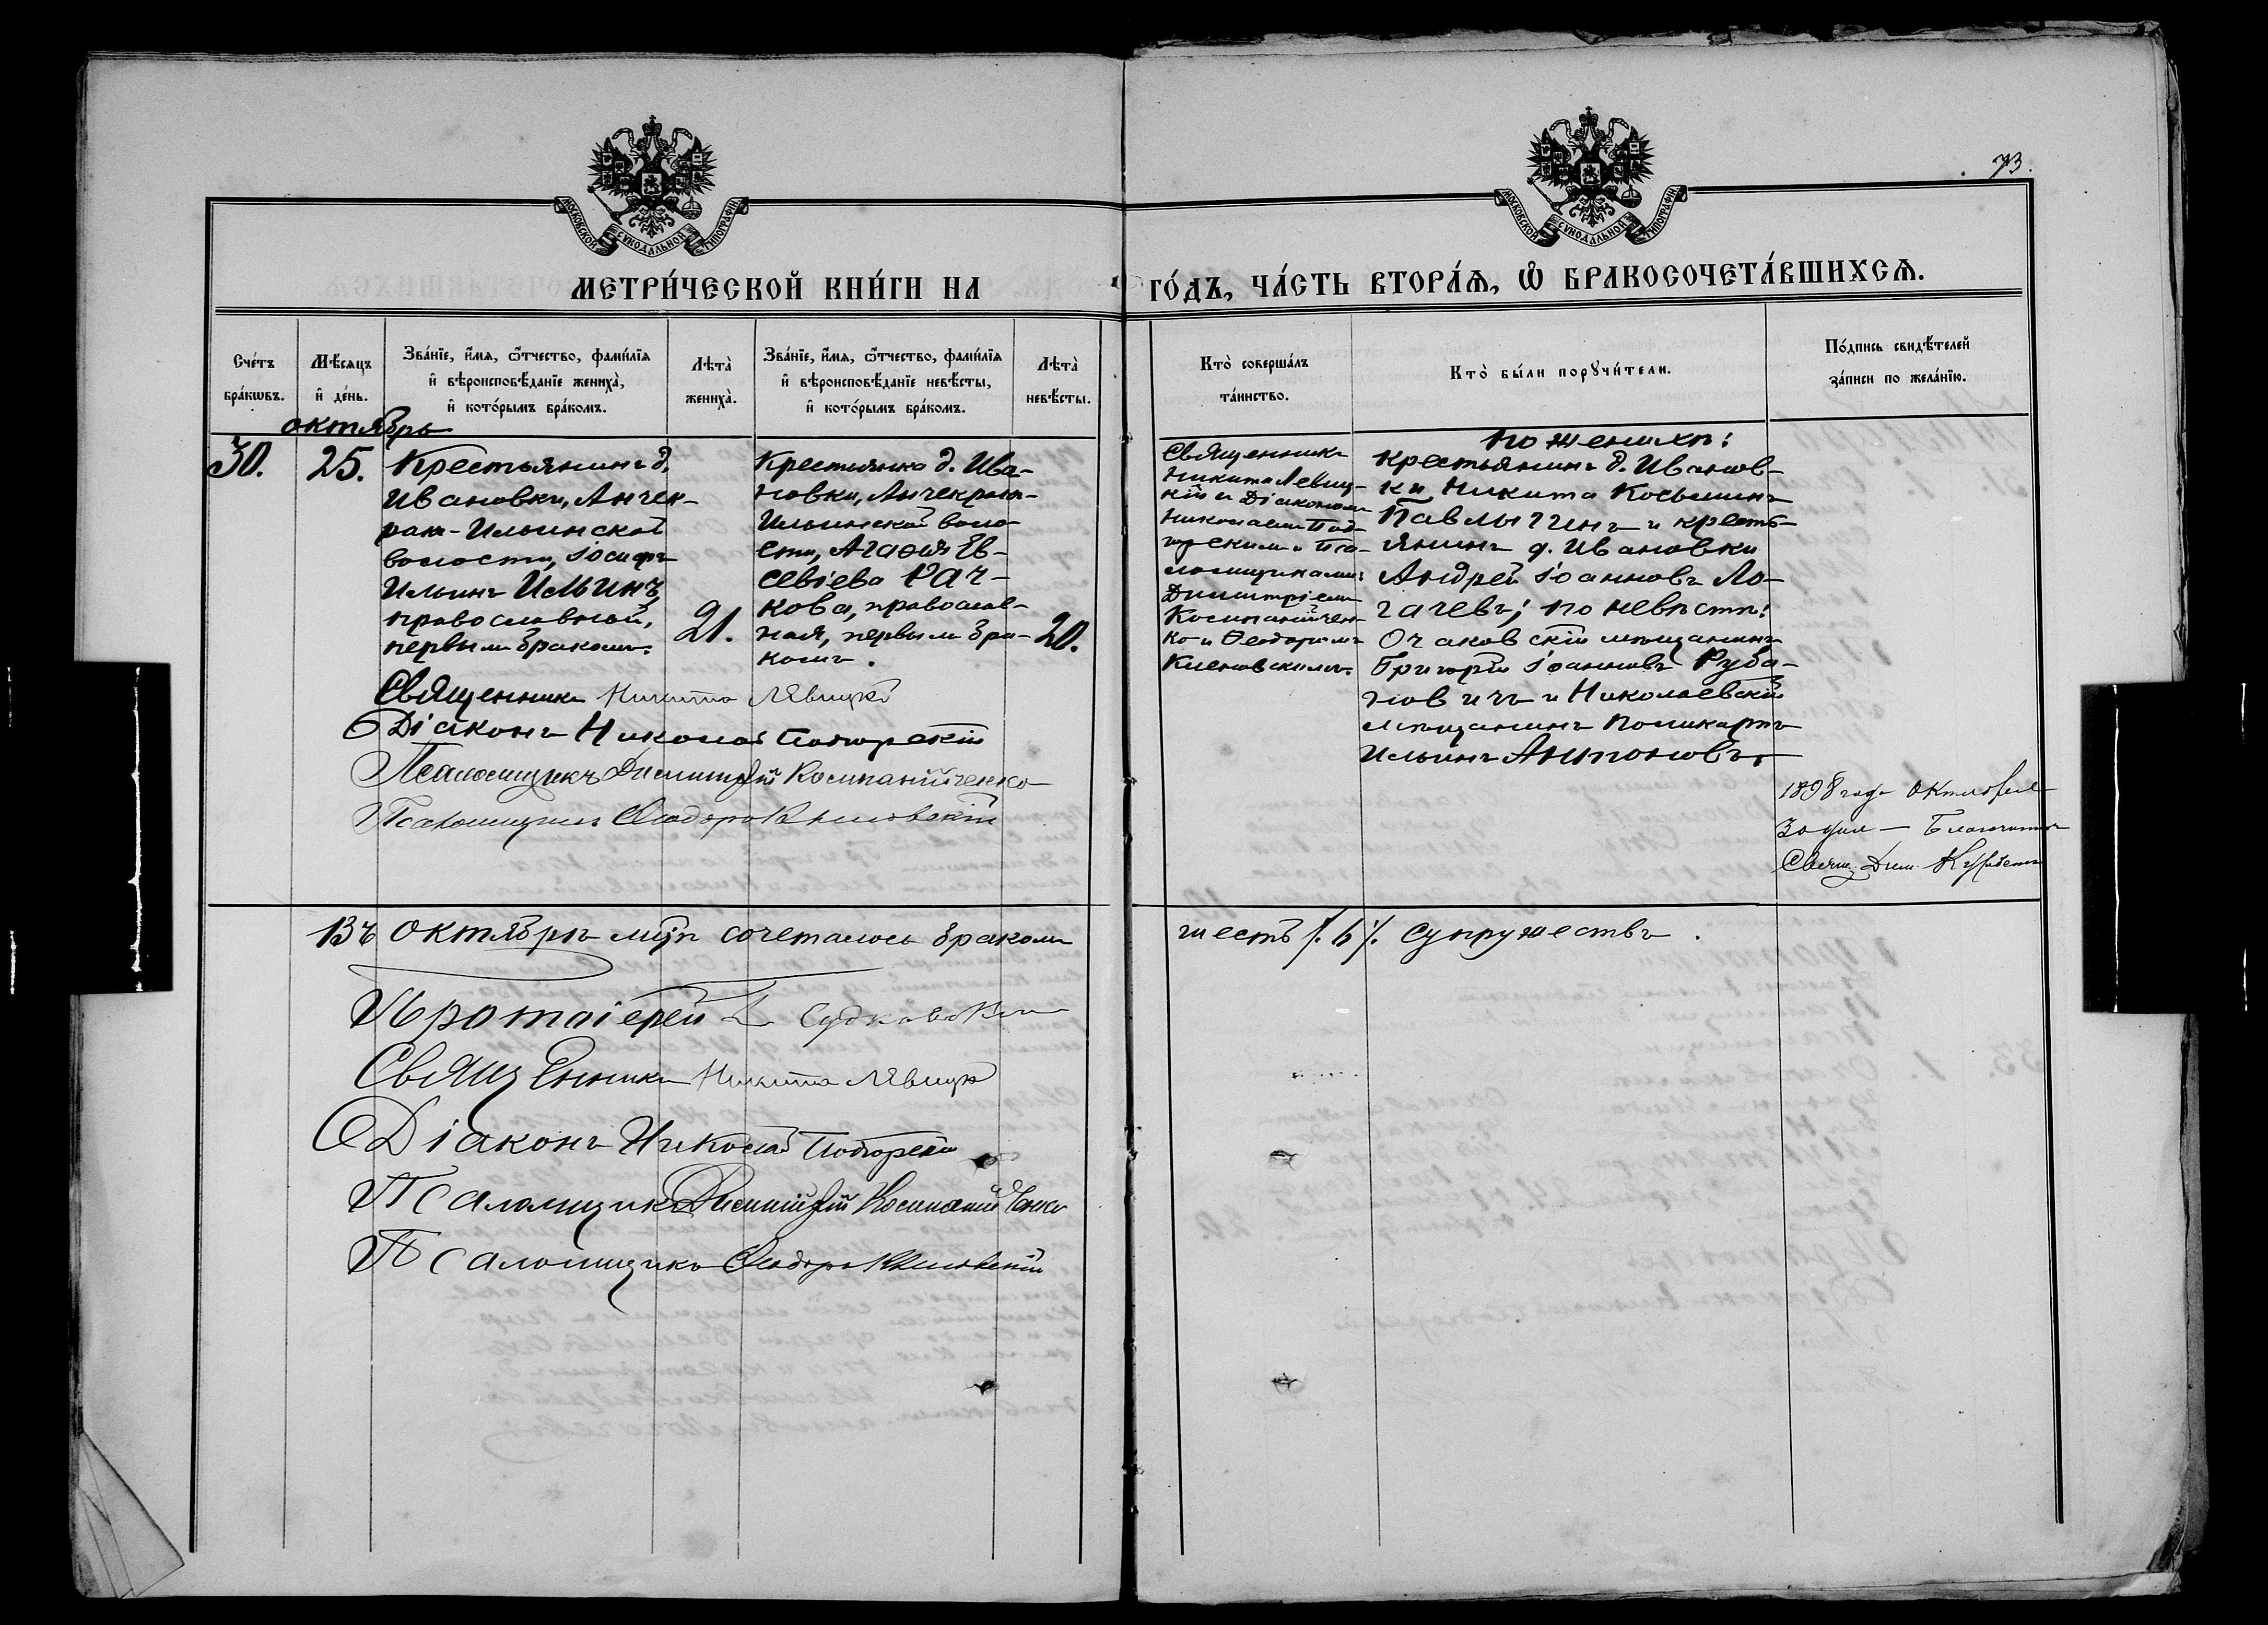 73.
МОСКОВСКОЙ СУНОДАЛЬНОЙ ТИПОГРАФІИ
МОСКОВСКОЙ СУНОДАЛЬНОЙ ТИПОГРАФІИ
МЕТРИ́ЧЕСКОЙ КНИ́ГИ НА
ГО́ДЪ, ЧА́СТЬ ВТОРА́Ѧ, Ѿ БРАКОСОЧЕТА́ВШИХСѦ.
Сче́тъ
бра́кѡвъ.
Мѣ́сяцъ
и҆ де́нь.
Зва́нїе, и҆́мя, ѻ҆́тчество, фами́лїя
и҆ вѣроисповѣ́данїе жениха̀,
и҆ кото́рымъ бра́комъ.
Лѣта̀
жениха̀.
Зва́нїе, и҆́мя, ѻ҆́тчество, фами́лїя
и҆ вѣроисповѣ́данїе невѣ́сты,
и҆ кото́рымъ бра́комъ.
Лѣта̀
невѣ́сты.
Кто̀ соверша́лъ
та́инство.
Кто̀ бы́ли порꙋчи́тели.
По́дпись свидѣ́телей
за́писи по жела́нїю.
октябрь
30.
25.
Крестьянинъ д.
Ивановки, Анчек-
рак-Ильинской
волости, Іосифъ
Ильинъ Ильинъ,
православный,
первымъ бракомъ.
21.
Крестьянка д. Ива-
новки, Анчекрак-
Ильинской воло-
сти, Агафія Ев-
севіева Рач-
кова, православ-
ная, первымъ бра-
комъ.
20.
Священникъ
Никита Левиц-
кій и Діакономъ
Николаемъ Под-
горскимъ и Пса-
ломщиками:
Димитріемъ
Компанійчен-
ко и Ѳеодоромъ
Княновскимъ.
По женихѣ:
крестьянинъ д. Иванов-
ки Никита Косьминъ
Павлыгинъ и кресть-
янинъ д. Ивановки
Андрей Іоанновъ Ло-
гачевъ; по невѣстѣ:
Очаковскій мѣщанинъ
Григорій Іоанновъ Руба-
новичъ и Николаевскій
мѣщанинъ Поликарпъ
Ильинъ Антоновъ.
Священникъ Никита Левицкій
Діаконъ Николай Подгорскій
Псаломщикъ Димитрій Компанійченко
Псаломщикъ Ѳеодоръ
1898 года Октября
30 дня — Благочинный
Свящ. Дим.
Въ октябрѣ м̃цѣ сочеталось бракомъ
шесть /. 6 /. супружествъ.
Протоіерей Г. Судковскій
Священникъ Никита Левицкій
Діаконъ Николай Подгорскій
Псаломщикъ Димитрій Компанійченко
Псаломщикъ Ѳеодоръ